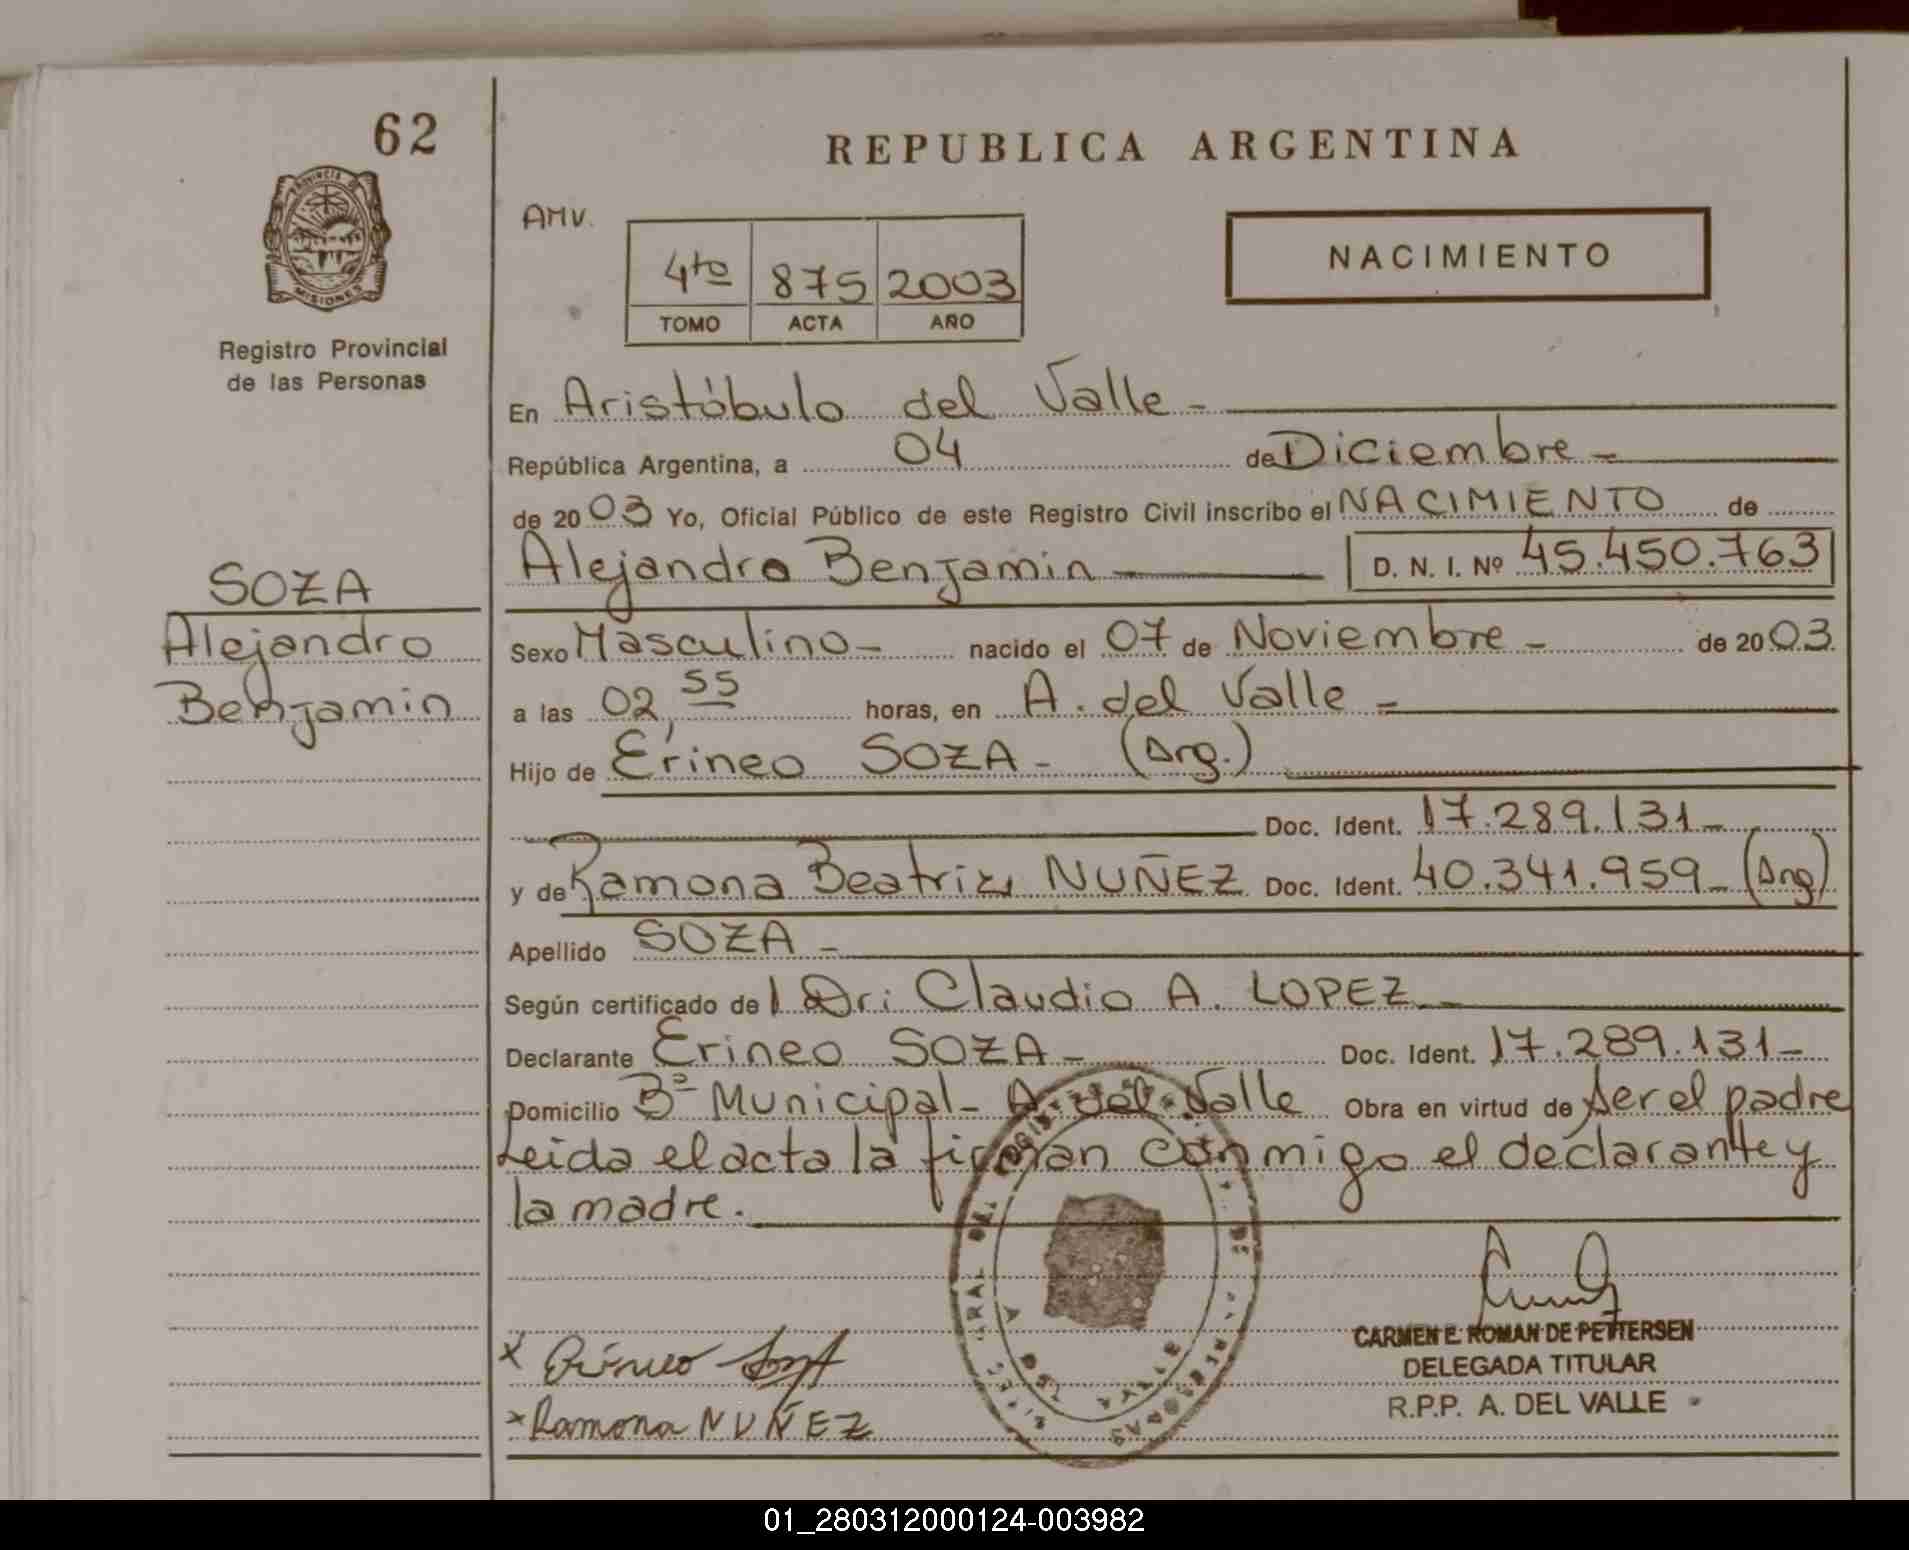 62
PROVINCIA DE
MISIONES
Registro Provincial
de las Personas
SOZA
Alejandro
Benjamin
REPUBLICA ARGENTINA
AMV.
4to 875 2003
TOMO ACTA AÑO
NACIMIENTO
En Aristóbulo del Valle -
República Argentina, a 04 de Diciembre -
de 2003 Yo, Oficial Público de este Registro Civil inscribo el NACIMIENTO de
Alejandro Benjamin D. N. I. Nº 45.450.763
Sexo Masculino - nacido el 07 de Noviembre - de 2003.
a las 02,55 horas, en A. del Valle -
Hijo de Erineo SOZA - (Arg.)
Doc. Ident. 17.289.131 -
y de Ramona Beatriz NUÑEZ Doc. Ident. 40.341.959 - (Arg)
Apellido SOZA -
Según certificado del Dr: Claudio A. LOPEZ -
Declarante Erineo SOZA - Doc. Ident. 17.289.131 -
Domicilio Bº Municipal - A. del Valle Obra en virtud de ser el padre
Leida el acta la firman conmigo el declarante y
la madre.
CARMEN E. ROMAN DE PETTERSEN
DELEGADA TITULAR
R.P.P. A. DEL VALLE
x Erineo
x Ramona NUÑEZ
01_280312000124-003982